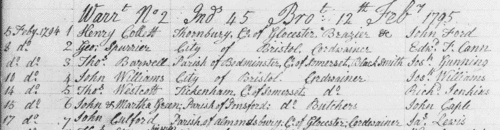 Warrt. No 2 Ind 45 Brot. 12th Feby 1795
5 Feby. 1794 1 Henry Collett Thornbury, C. of Glocester Brazier &c John Ford
8 do. 2 Geo. Spurrier City of Bristol Cordwainer Edwd. T. Cann
do. do. 3 Thos. Barwell Parish of Bedminster, C. of Somerset, Black Smith Jos. Gunning
10 do. 4 John Williams City of Bristol Cordwainer Jos. Williams
14 do. 5 Thos. Westcott Tickenham, C. of Somerset, do. Richd. Jenkins
15 do. 6 John & Martha Green, Parish of do. Butchers John Cagle
17 do. 7 John Parish of Almondsbury, C. of Glocester, Cordwainer Jas. Lewis